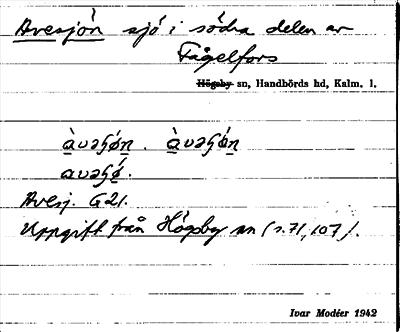 Avesjön sjö i södra delen av
Fågelfors
Högsby sn, Handbörds hd, Kalm. l.
Avesj. G21.
Uppgift från Högsby sn (s. 71, 107).
Ivar Modéer 1942